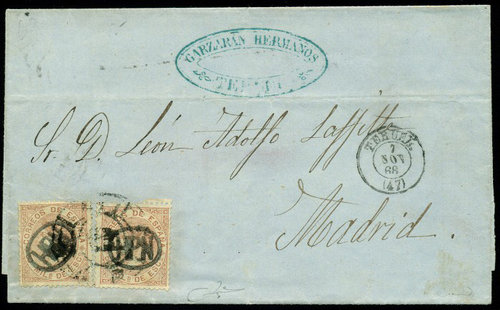 GARZARÁN HERMANOS
TERUEL
Sr. D. León Adolfo Laffitte
TERUEL
7
NOV
68
(47)
Madrid
CORREOS DE ESPAÑA
HPN
HPN